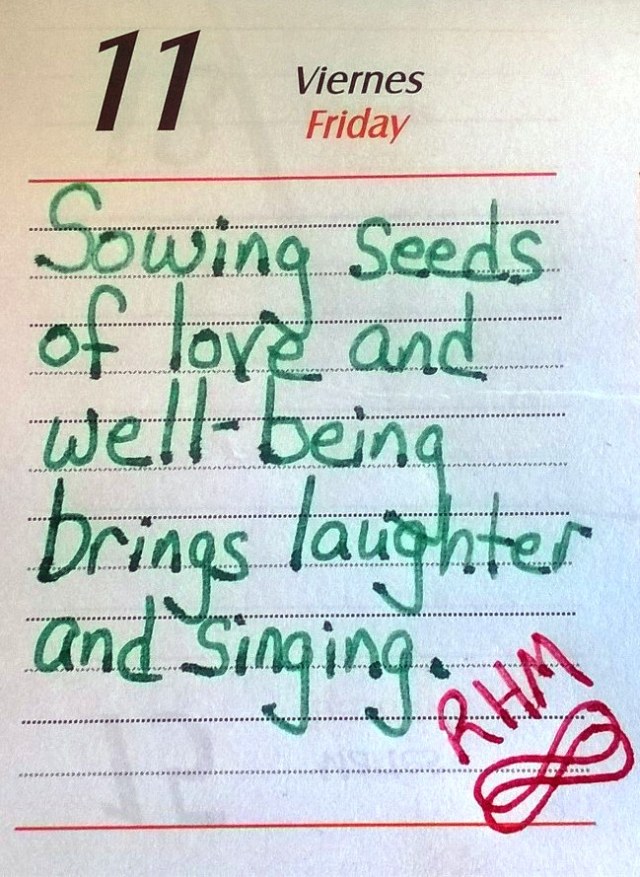 11
Viernes
Friday
Sowing seeds
of love and
well-being
brings laughter
and singing.
RHM